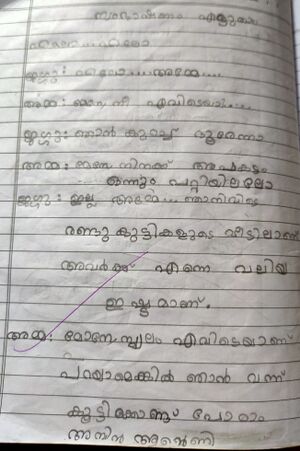 സംഭാഷണം എഴുതുക
ഹലോ....ഹലോ
ജഗ്ഗു: ഹലോ.....അമ്മേ....
അമ്മ: മോനേ നീ എവിടെയാ.....
ജഗ്ഗു: ഞാൻ കുറച്ച് ദൂരെന്നാ
അമ്മ: മോനേ നിനക്ക് അപകടം
ഒന്നും പറ്റിയില്ലലോ
ജഗ്ഗു: ഇല്ല അമ്മേ... ഞാനിവിടെ
രണ്ടു കുട്ടികളുടെ വീട്ടിലാണ്
അവർക്ക് എന്നെ വലിയ
ഇഷ്ടമാണ്.
അമ്മ: മോനേ സ്ഥലം എവിടെയാണ്
പറയാമെങ്കിൽ ഞാൻ വന്ന്
കൂട്ടിക്കൊണ്ട് പോരാം
അന്റണി